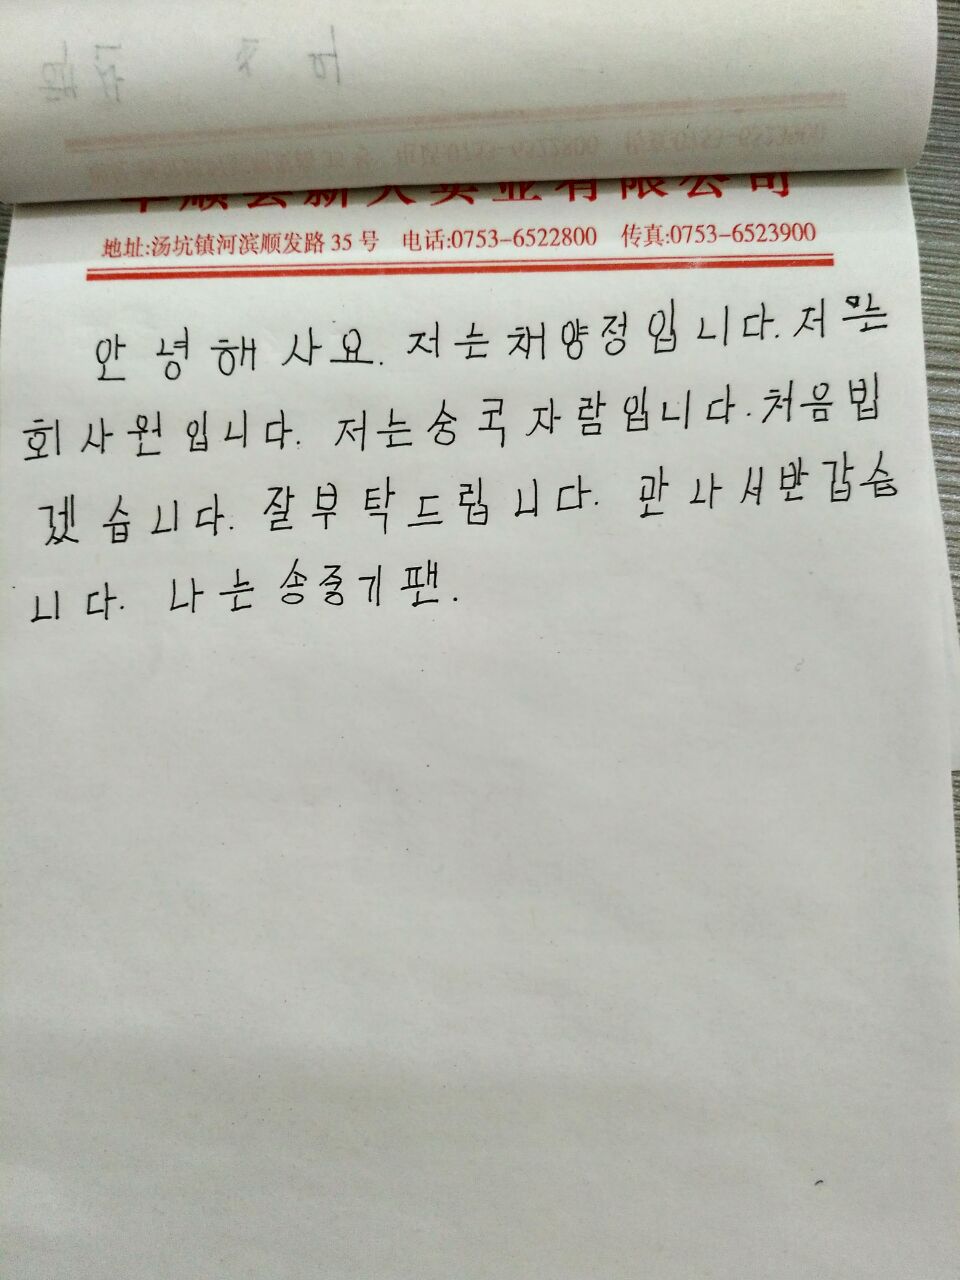 丰顺县新大实业有限公司
地址:汤坑镇河滨顺发路 35 号 电话:0753-6522800 传真:0753-6523900
안녕해사요. 저는채양정입니다.저는
회사원입니다. 저는숭국자람입니다.처음법
겠습니다. 잘부탁드립니다. 만나서반갑습
니다. 나는송중기팬.